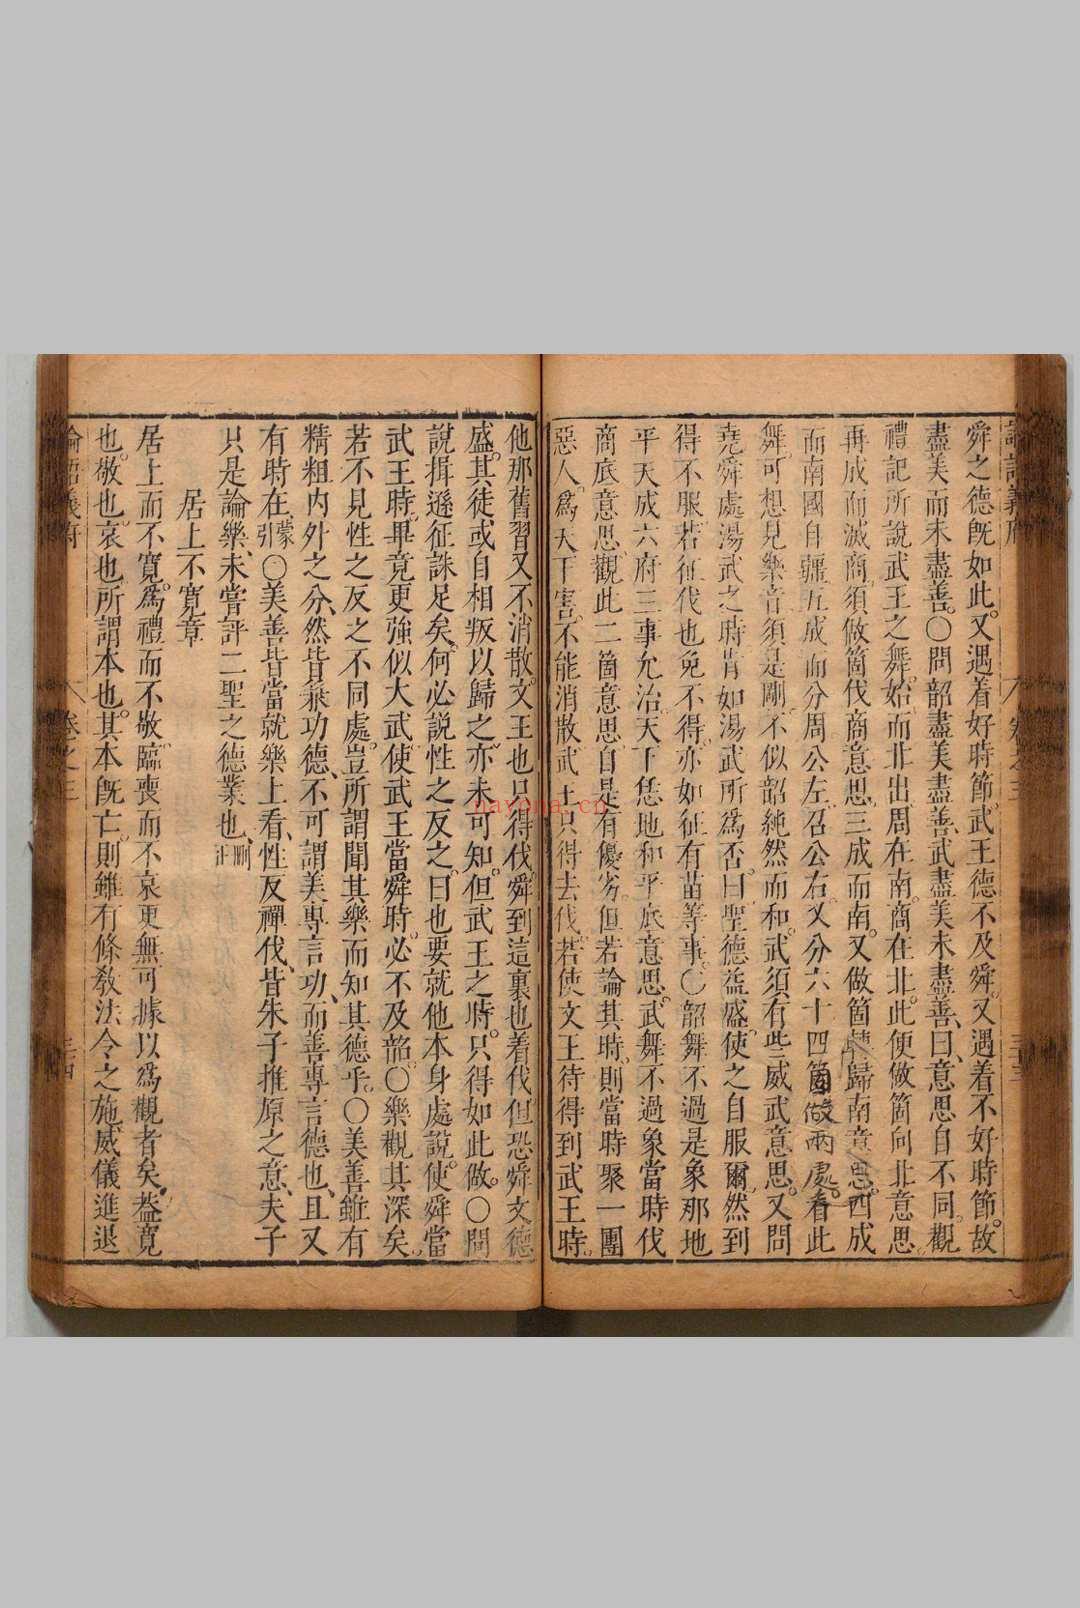 舜之德旣如此。又遇着好時節。武王德不及舜。又遇着不好時節。故
盡美而未盡善。○問韶盡美盡善、武盡美未盡善、曰、意思自不同。觀
禮記所說武王之舞。始而北出、周在南、商在北。此便做箇向北意思。
再成而滅商、須做箇伐商意思。三成而南。又做箇轉歸南意思。四成
而南國自疆五成而分周公左召公右。又分六十四箇做兩處。看此
舞可想見樂音須是剛、不似韶純然而和。武須有些威武意思。又問
堯舜處湯武之時肯如湯武所爲否。曰聖德益盛、使之自服爾。然到
得不服若征伐也免不得。亦如征有苗等事。○韶舞不過是象那地
平天成六府三事允治。天下恁地和平底意思。武舞不過象當時伐
商底意思。觀此二箇意思自是有優劣。但若論其時、則當時聚一團
惡人爲天下害。不能消散武王只得去伐。若使文王待得到武王時。
他那舊習又不消散。文王也只得伐。舜到這裏也着伐。但恐舜文德
盛。其徒或自相叛以歸之亦未可知。但武王之時。只得如此做。○問
說揖遜征誅足矣。何必說性之反之。曰也要就他本身處說。使舜當
武王時。畢竟更強似大武。使武王當舜時。必不及韶。○樂觀其深矣。
若不見性之反之不同處。豈所謂聞其樂而知其德乎。○美善雖有
精粗內外之分、然皆兼功德、不可謂美專言功、而善專言德也、且又
有時在、蒙引○美善皆當就樂上看、性反禪伐、皆朱子推原之意、夫子
只是論樂、未嘗評二聖之德業也、刪正
居上不寬章
居上而不寬。爲禮而不敬。臨喪而不哀。更無可據以爲觀者矣。蓋寬
也。敬也。哀也。所謂本也。其本旣亡。則雖有條敎法令之施。威儀進退
論語義府
卷之三
三四